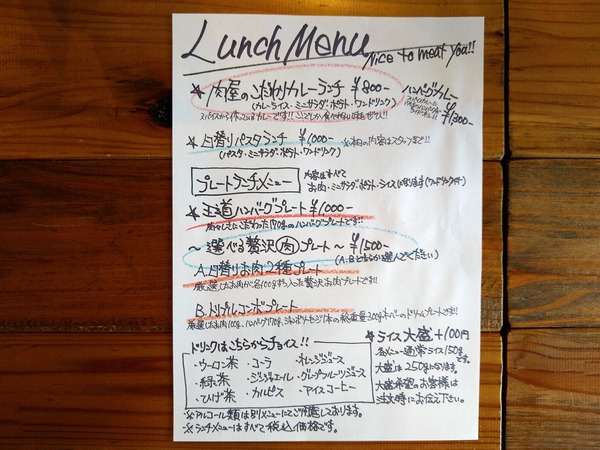 Lunch Menu
Nice to meat you!!
☆ 肉屋のこだわりカレーランチ ¥800-
(カレーライス・ミニサラダ・ポテト・ワンドリンク)
ハンバーグカレー
¥1300-
☆ 日替りパスタランチ ¥1,000- ※本日の内容はスタッフまで!!
(パスタ・ミニサラダ・ポテト・ワンドリンク)
プレートランチメニュー
内容はすべて
お肉・ミニサラダ・ポテト・ライスになります(ワンドリンク付)
☆ 王道ハンバーグプレート ¥1,000-
170gのハンバーグプレートです!!
〜選べる贅沢肉プレート〜 ¥1500-
(A.Bどちらか選んでください)
A.日替りお肉2種プレート
厳選したお肉が各100gずつ入った贅沢お肉プレートです!!
B.トリプルコンボプレート
厳選したお肉100g、ハンバーグ170g、ソーセージ1本の総重量300gオーバーのドリームプレートです!!
ドリンクはこちらからチョイス!!
・ウーロン茶 ・コーラ ・オレンジジュース
・緑茶 ・ジンジャエール ・グレープフルーツジュース
・ひげ茶 ・カルピス ・アイスコーヒー
☆ライス大盛+100円
各メニュー通常ライス150gです。
大盛は250gになります。
大盛希望のお客様は
注文時にお伝え下さい。
※アルコール類は別メニューにてご用意しております。
※ランチメニューはすべて税込価格です。